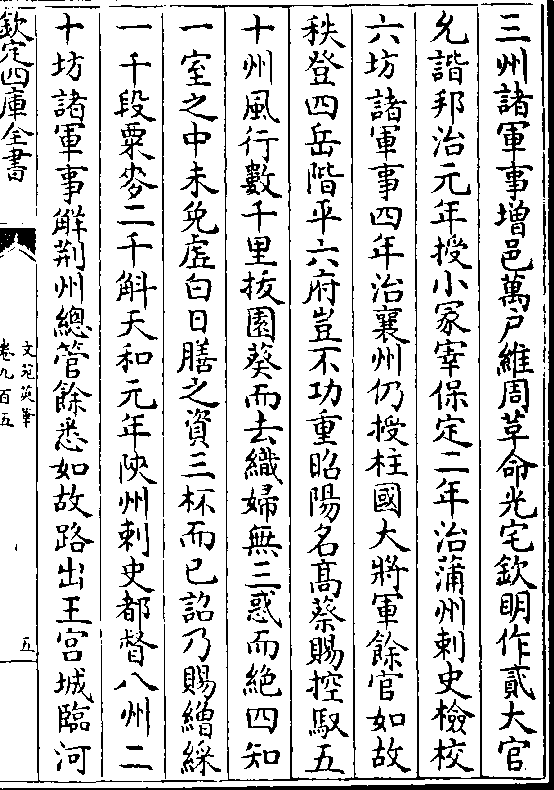 三州諸軍事增邑萬戶維周革命光宅欽明作貳大官
允諧邦治元年授小冢宰保定二年治蒲州刺史檢校
六坊諸軍事四年治襄州仍授柱國大將軍餘官如故
秩登四岳階平六府豈不功重昭陽名高蔡賜控馭五
十州風行數千里拔園葵而去織婦無三惑而絶四知
一室之中未免虛白日膳之資三杯而已詔乃賜繒綵
一千段粟麥二千斛天和元年陝州刺史都督八州二
十坊諸軍事觧荆州總管餘悉如故路出王宮城臨河
欽定四庫全書
文苑英華
卷九百五
五